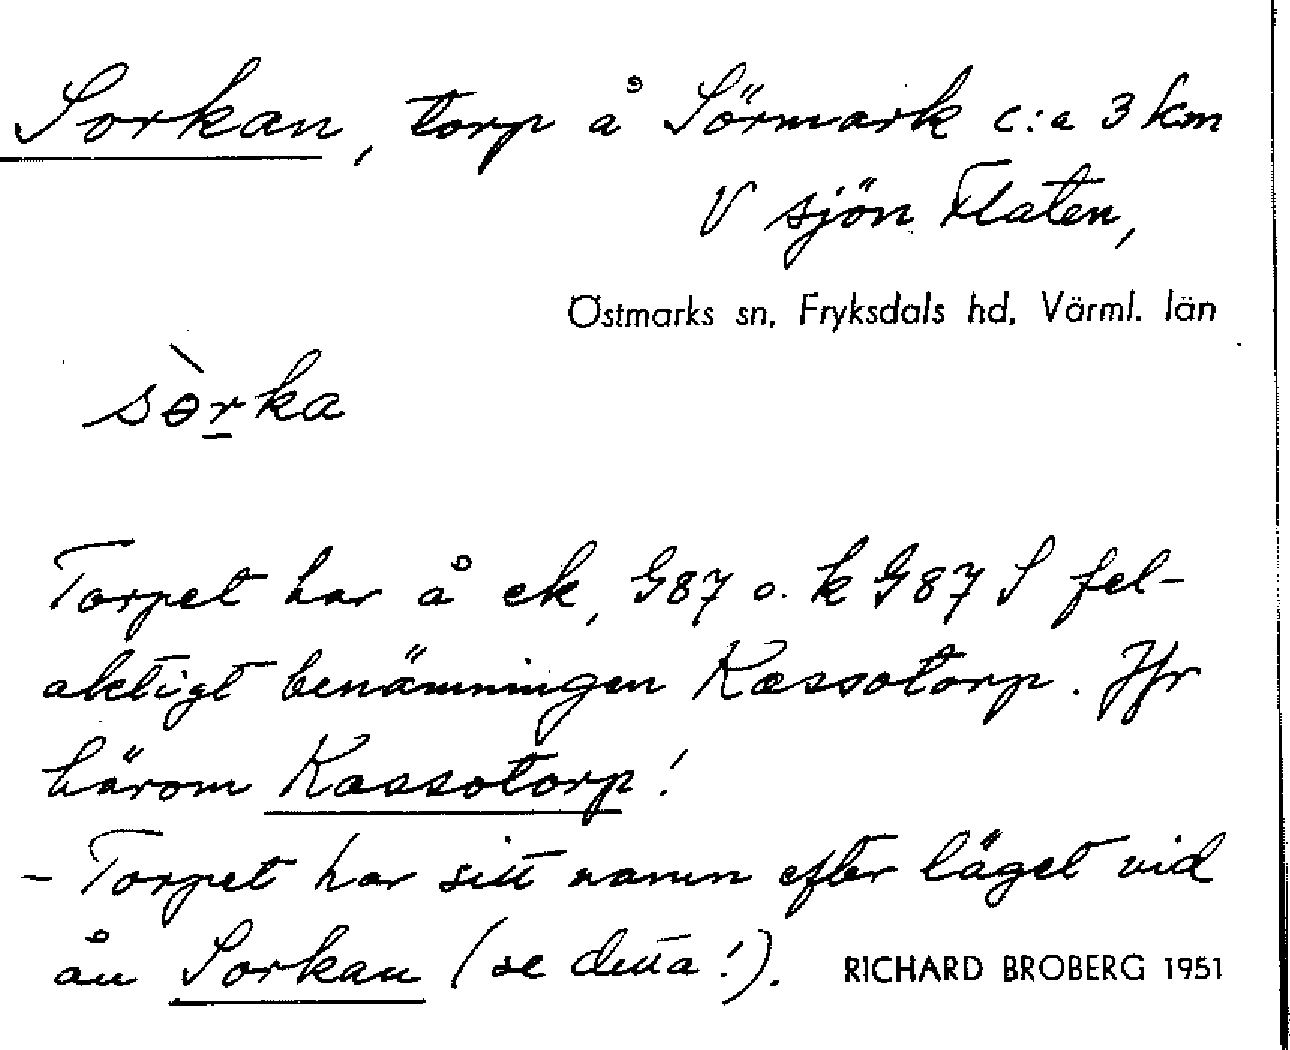 Sorkan, torp å Sörmark c:a 3 km
V sjön Flaten,
Östmarks sn, Fryksdals hd, Värml. län
sɵ̀r̲ka
Torpet har å ek, G87 o. k G87 S fel-
aktigt benämningen Kassotorp. Jfr
härom Kassotorp!
- Torpet har sitt namn efter läget vid
ån Sorkan (se detta!). RICHARD BROBERG 1951